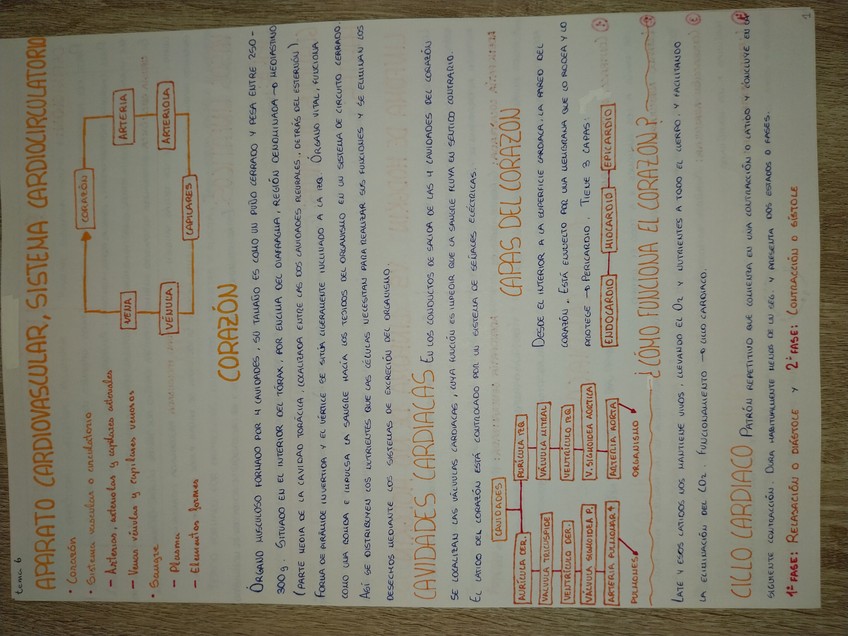 tema 6
APARATO CARDIOVASCULAR, SISTEMA CARDIOCIRCULATORIO
• Corazón
• Sistema vascular o circulatorio
- Arterias, arteriolas y capilares arteriales
- Venas, vénulas y capilares venosos
• Sangre
- Plasma
- Elementos formes
CORAZÓN
VENA
ARTERIA
VÉNULA
ARTERIOLA
CAPILARES
CORAZÓN
ÓRGANO MUSCULOSO FORMADO POR 4 CAVIDADES, SU TAMAÑO ES COMO UN PUÑO CERRADO Y PESA ENTRE 250-
300g. SITUADO EN EL INTERIOR DEL TÓRAX, POR ENCIMA DEL DIAFRAGMA, REGIÓN DENOMINADA → MEDIASTINO
(PARTE MEDIA DE LA CAVIDAD TORÁCICA, LOCALIZADA ENTRE LAS DOS CAVIDADES PLEURALES, DETRÁS DEL ESTERNÓN).
FORMA DE PIRÁMIDE INVERTIDA Y EL VÉRTICE SE SITÚA LIGERAMENTE INCLINADO A LA IZQ. ÓRGANO VITAL, FUNCIONA
COMO UNA BOMBA E IMPULSA LA SANGRE HACÍA LOS TEJIDOS DEL ORGANISMO EN UN SISTEMA DE CIRCUITO CERRADO.
ASÍ SE DISTRIBUYEN LOS NUTRIENTES QUE LAS CÉLULAS NECESITAN PARA REALIZAR SUS FUNCIONES Y SE ELIMINAN LOS
DESECHOS MEDIANTE LOS SISTEMAS DE EXCRECIÓN DEL ORGANISMO.
CAVIDADES CARDIACAS EN LOS CONDUCTOS DE SALIDA DE LAS 4 CAVIDADES DEL CORAZÓN
SE LOCALIZAN LAS VÁLVULAS CARDIACAS, CUYA FUNCIÓN ES IMPEDIR QUE LA SANGRE FLUYA EN SENTIDO CONTRARIO.
EL LATIDO DEL CORAZÓN ESTÁ CONTROLADO POR UN SISTEMA DE SEÑALES ELÉCTRICAS.
CAVIDADES
AURÍCULA DER. AURÍCULA IZQ.
VALVULA TRICUSPIDE VÁLVULA MITRAL
VENTRÍCULO DER. VENTRÍCULO IZQ
VÁLVULA SIGMOIDEA P. V. SIGMOIDEA AORTICA
ARTERIA PULMONAR ARTERIA AORTA
PULMONES ORGANISMO
CAPAS DEL CORAZÓN
DESDE EL INTERIOR A LA SUPERFICIE CARDIACA, LA PARED DEL
CORAZÓN. ESTÁ ENVUELTO POR UNA MEMBRANA QUE LO RODEA Y LO
PROTEGE → PERICARDIO. TIENE 3 CAPAS:
ENDOCARDIO MIOCARDIO EPICARDIO
¿CÓMO FUNCIONA EL CORAZÓN?
LATE Y ESOS LATIDOS NOS MANTIENE VIVOS, LLEVANDO EL O2 Y NUTRIENTES A TODO EL CUERPO, Y FACILITANDO
LA ELIMINACIÓN DEL CO2. FUNCIONAMIENTO → CICLO CARDIACO.
CICLO CARDIACO PATRÓN REPETITIVO QUE COMIENZA EN UNA CONTRACCIÓN O LATIDO Y CONCLUYE EN LA
SIGUIENTE CONTRACCIÓN. DURA HABITUALMENTE MENOS DE UN SEG. Y PRESENTA DOS ESTADOS O FASES.
1ª FASE: RELAJACIÓN O DIÁSTOLE Y 2ª FASE: CONTRACCIÓN O SÍSTOLE
1